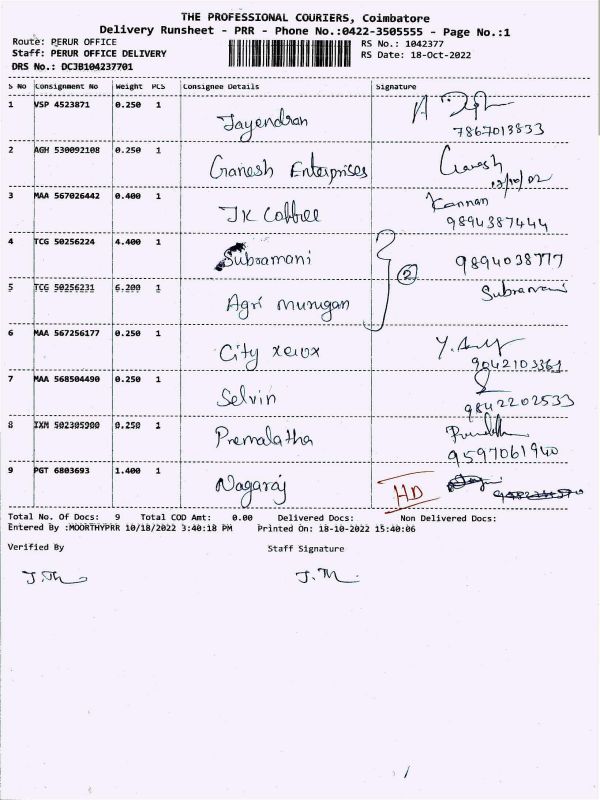 THE PROFESSIONAL COURIERS, Coimbatore
Delivery Runsheet - PRR - Phone No.:0422-3505555 - Page No.:1
Route: PERUR OFFICE RS No.: 1042377
Staff: PERUR OFFICE DELIVERY RS Date: 18-Oct-2022
DRS No.: DCJB104237701
S No Consignment No Weight PCS Consignee Details Signature
1 VSP 4523871 0.250 1 Jayendran
7867013833
2 AGH 530092108 0.250 1 Ganesh Enterprises Ganesh
3 MAA 567026442 0.400 1 JK Cobbee Kannan
9894387444
4 TCG 50256224 4.400 1 Subramani 9894038777
2
5 TCG 50256231 6.200 1 Agri murugan Subramani
6 MAA 567256177 0.250 1 City xerox
9042103361
7 MAA 568504490 0.250 1 Selvin
9842202533
8 IXM 502305900 0.250 1 Premalatha
9597061940
9 PGT 6803693 1.400 1 Nagaraj HD
Total No. Of Docs: 9 Total COD Amt: 0.00 Delivered Docs: Non Delivered Docs:
Entered By :MOORTHYPRR 10/18/2022 3:40:18 PM Printed On: 18-10-2022 15:40:06
Verified By Staff Signature